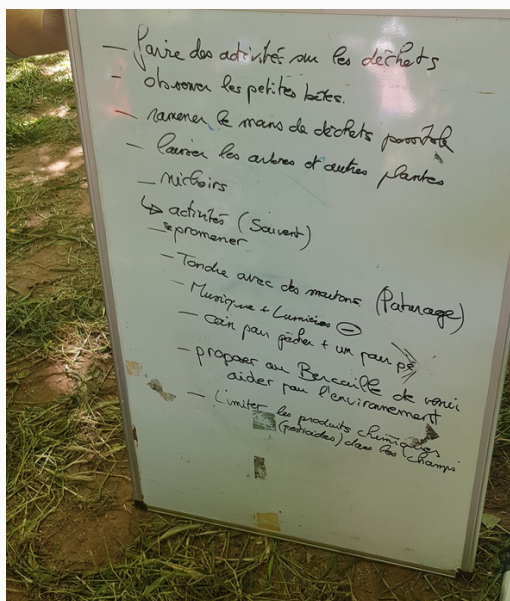 - faire des activités sur les déchets
- observer les petites bêtes.
- ramener le moins de déchets possible
- laisser les arbres et autres plantes
- nichoirs
↳ activités (Souvent)
- se promener
- Tondre avec des moutons (Paturage)
- Musique + Lumières ⊖
- coin pour pêcher + un pour
- proposer au de venir
aider pour l'environnement
- Limiter les produits chimiques
(pesticides) dans les champs